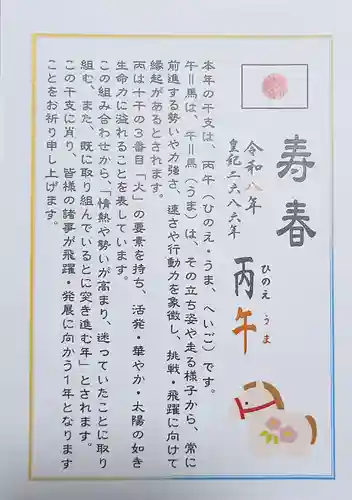 寿春
令和八年
皇紀二六八六年
丙午
ひのえ うま
本年の干支は、丙午（ひのえ・うま、へいご）です。
午＝馬は、午＝馬（うま）は、その立ち姿や走る様子から、常に
前進する勢いや力強さ、速さや行動力を象徴し、挑戦・飛躍に向けて
縁起があるとされます。
丙は十干の３番目「火」の要素を持ち、活発・華やか・太陽の如き
生命力に溢れることを表しています。
この組み合わせから、「情熱や勢いが高まり、迷っていたことに取り
組む、また、既に取り組んでいるとに突き進む年」とされます。
この干支に肖り、皆様の諸事が飛躍・発展に向かう１年となります
ことをお祈り申し上げます。